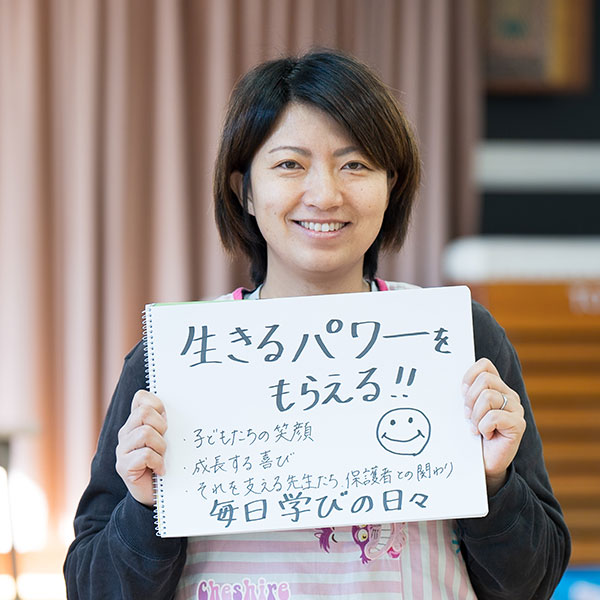 生きるパワーを
もらえる!!
・子どもたちの笑顔
・成長する喜び
・それを支える先生たち、保護者との関わり
毎日学びの日々
Cheshire